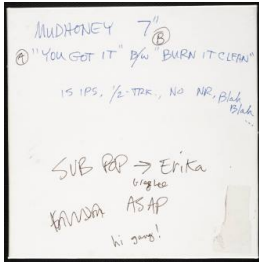 MUDHONEY 7"
Ⓐ "YOU GOT IT" B/W Ⓑ "BURN IT CLEAN"
15 IPS, 1/2-TRK., NO NR, Blah,
Blah...
SUB POP → Erika
ASAP
hi gang!